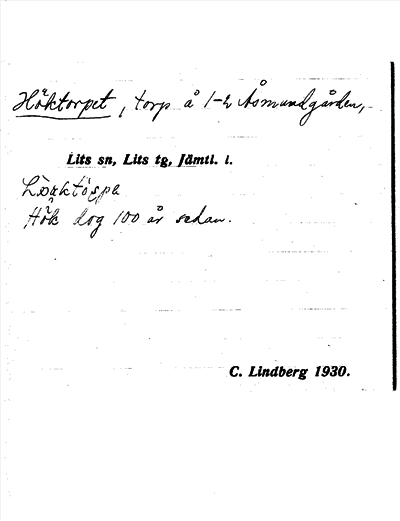 Höktorpet, torp å 1-2 Åsmundgården,
Lits sn, Lits tg, Jämtl. l.
Hök dog 100 år sedan.
C. Lindberg 1930.